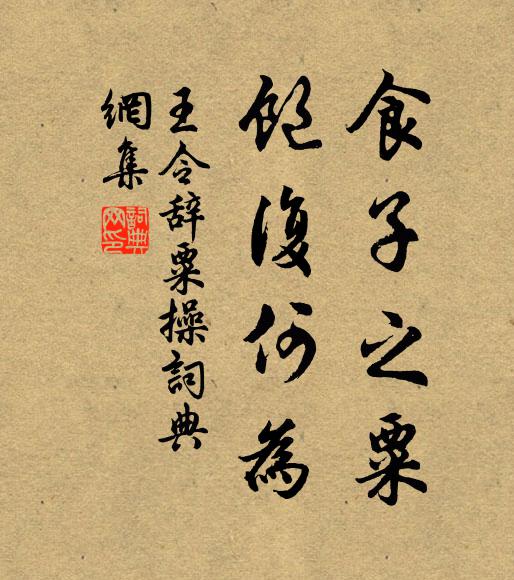 食子之粟
飽復何為
王令辞粟操詞典
網集
詞典網印